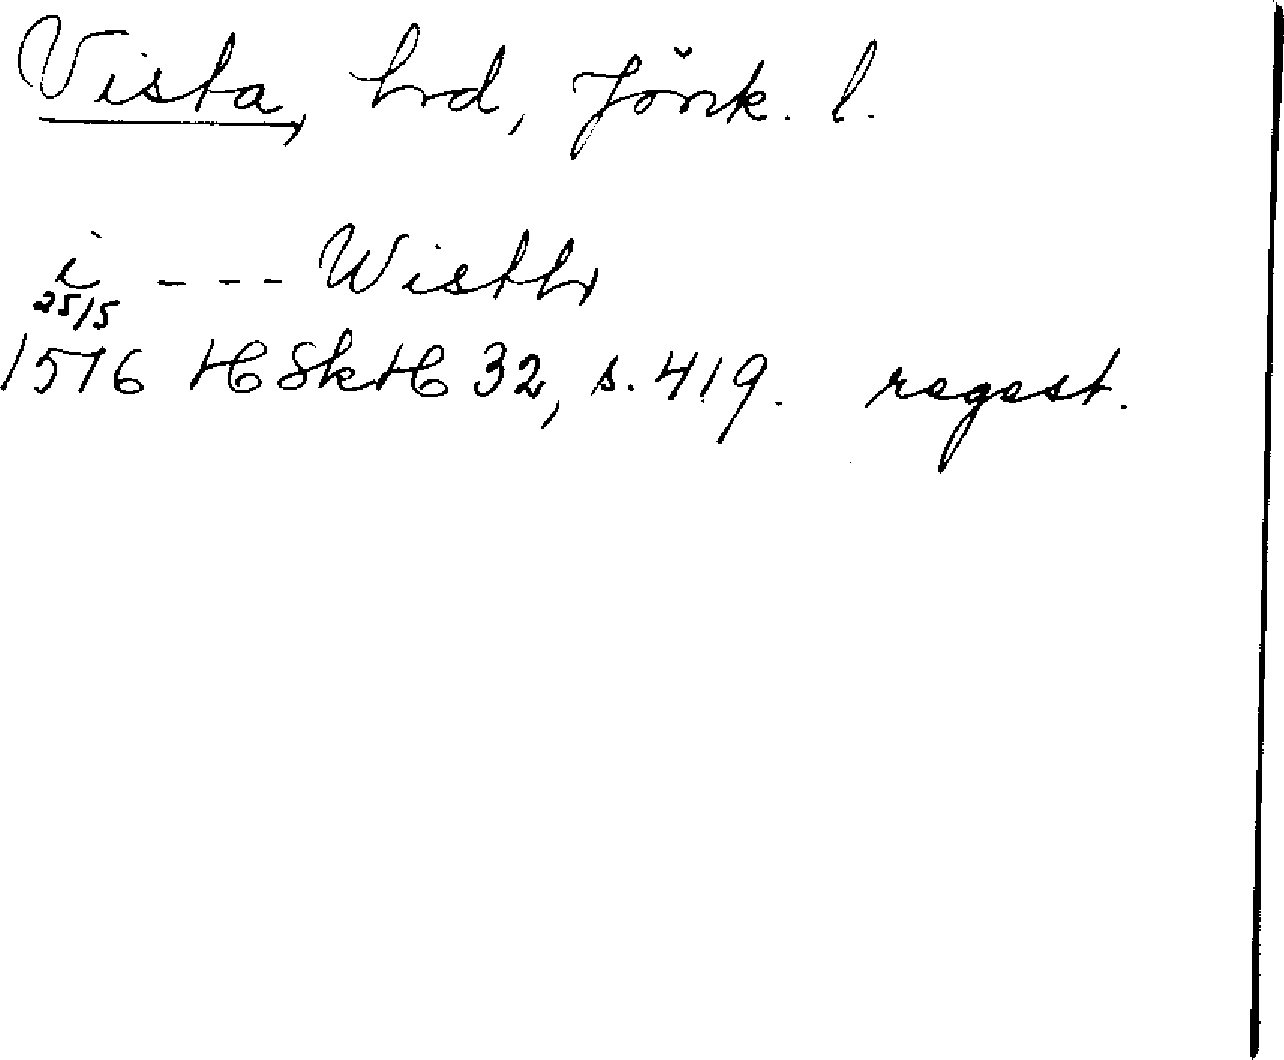 Vista, hrd, Jönk. l.
i - - - Wisth
25/5
1576 HSkH 32, s. 419. regest.